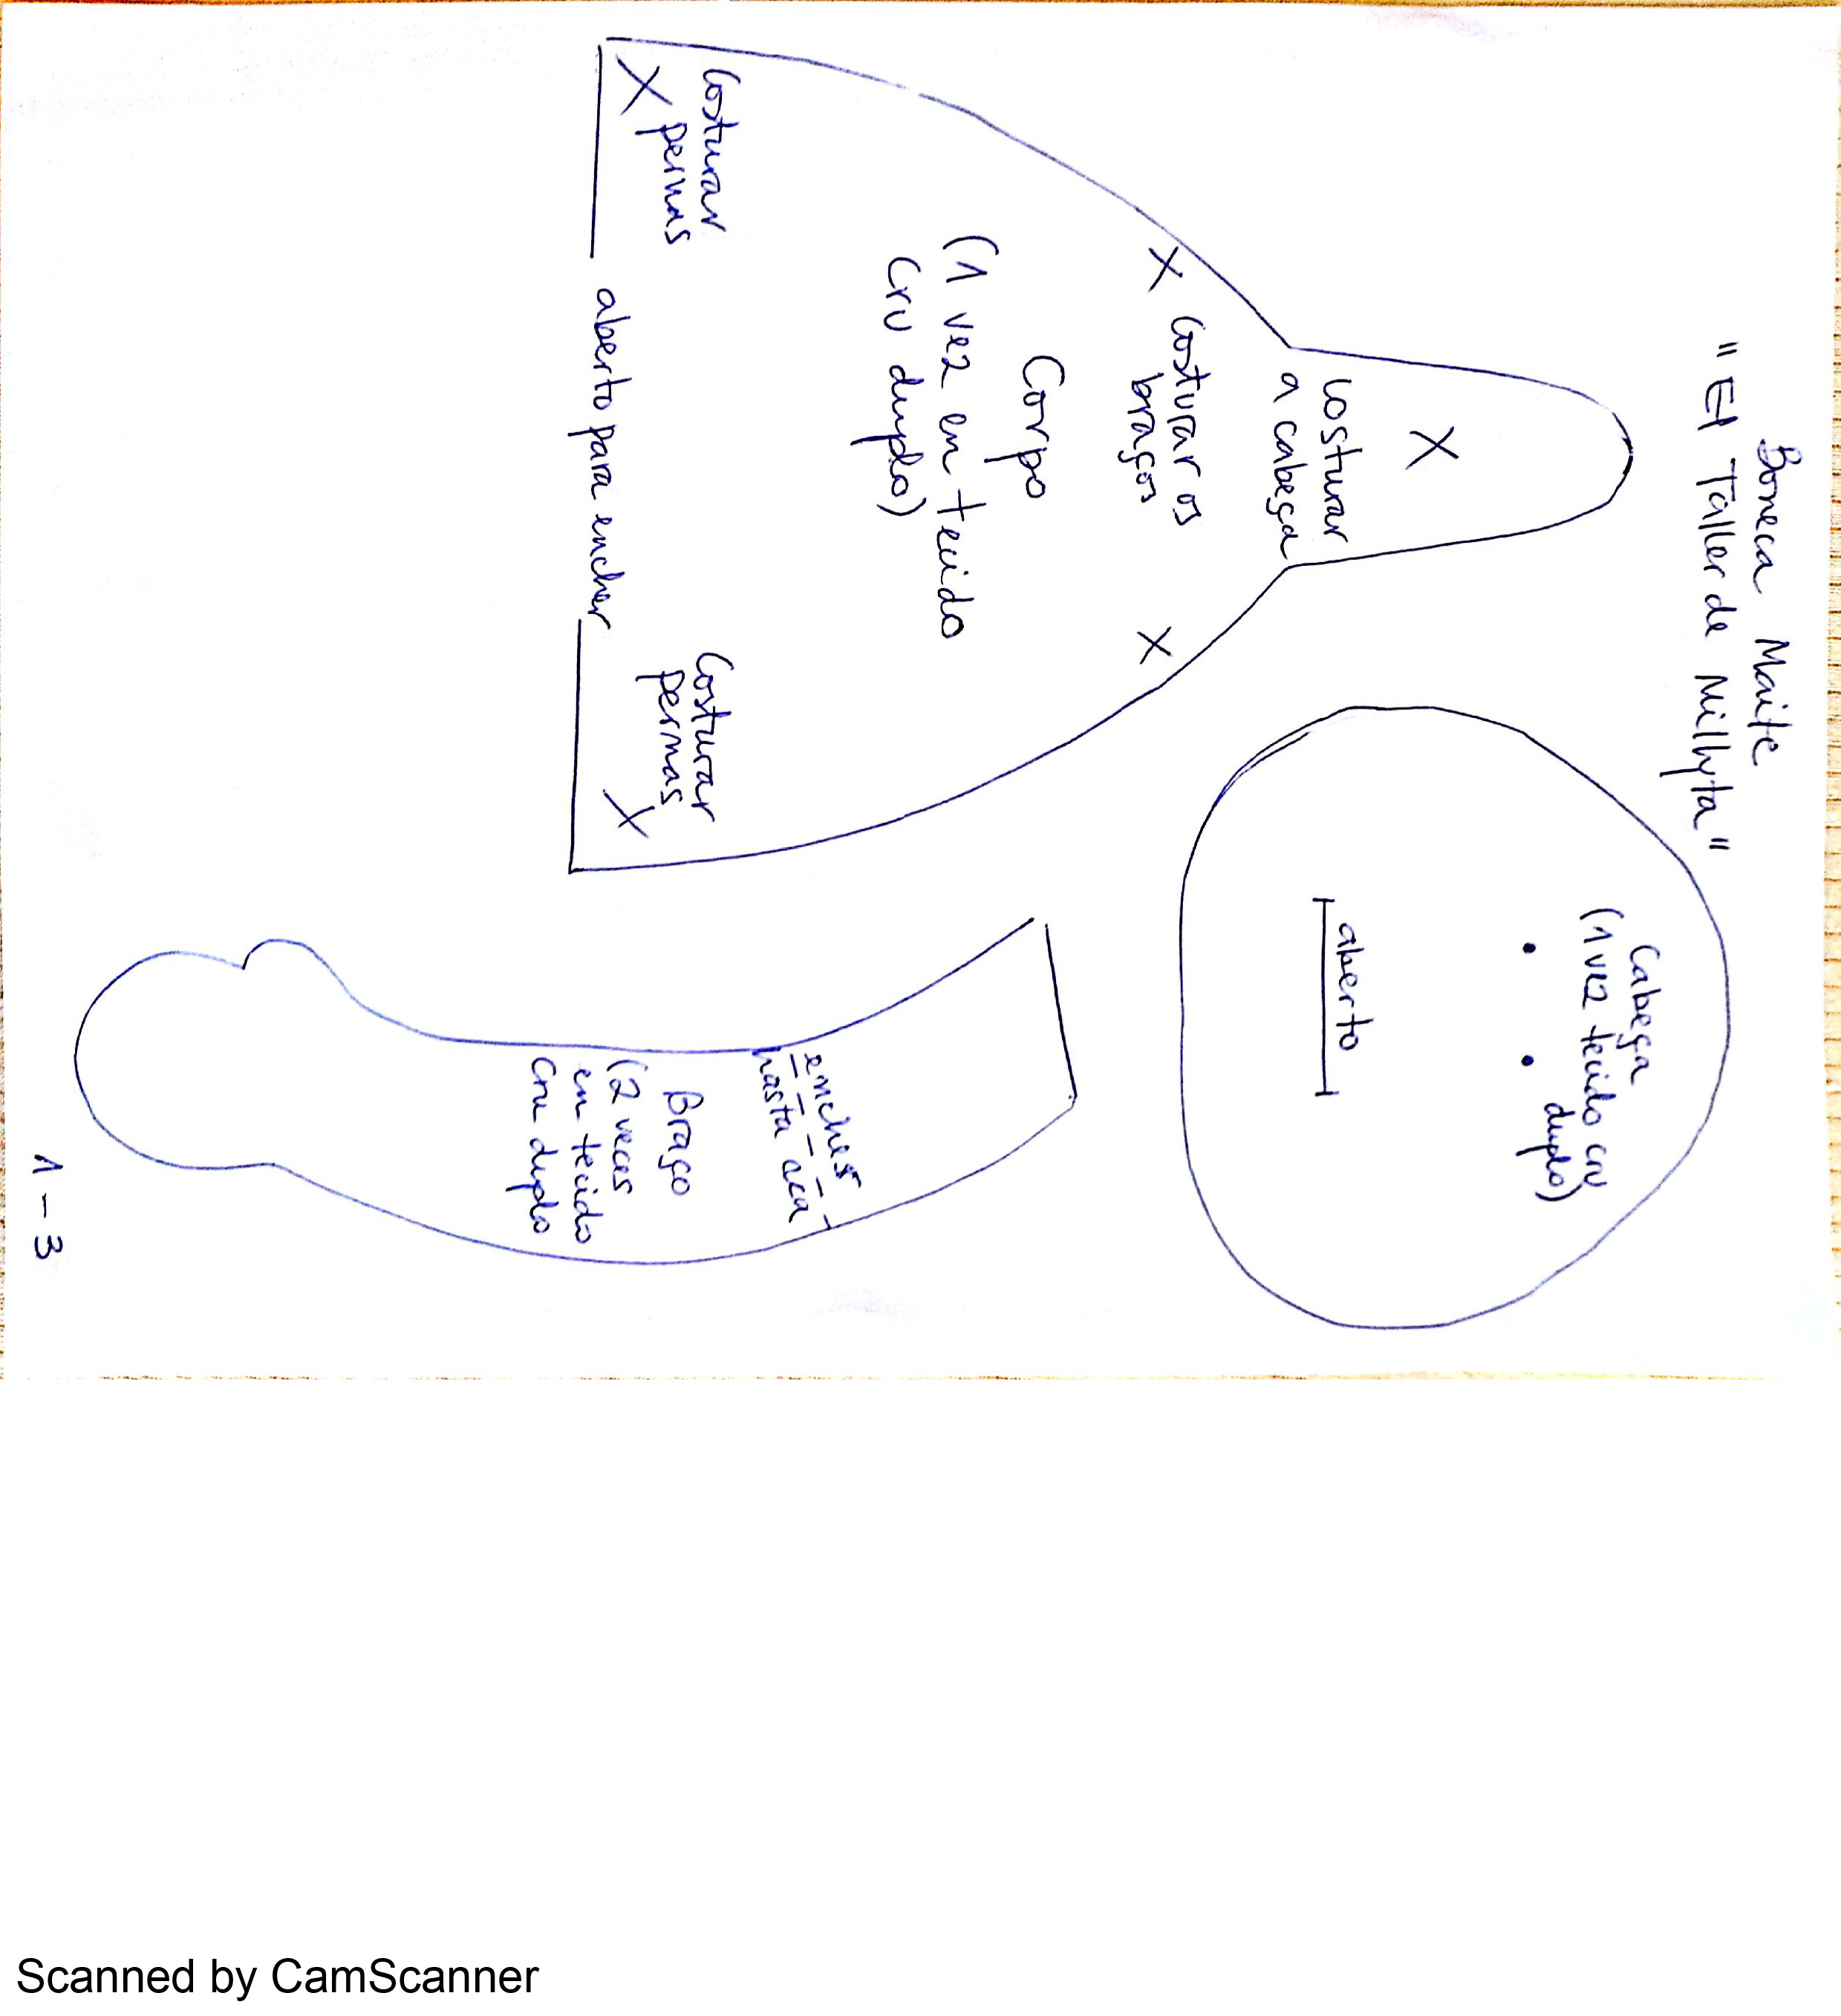 Boneca Maite
"El Taller de Millyta"
X
Costurar
a cabeça
X
Costurar os
braços
X
Corpo
(1 vez en tecido
cru duplo)
Costurar
X pernas
Costurar
pernas
X
aberto para encher
Cabeça
(1 vez tecido cru
duplo)
aberto
encher
hasta aca
Braço
(2 veces
en tecido
cru duplo
1-3
Scanned by CamScanner